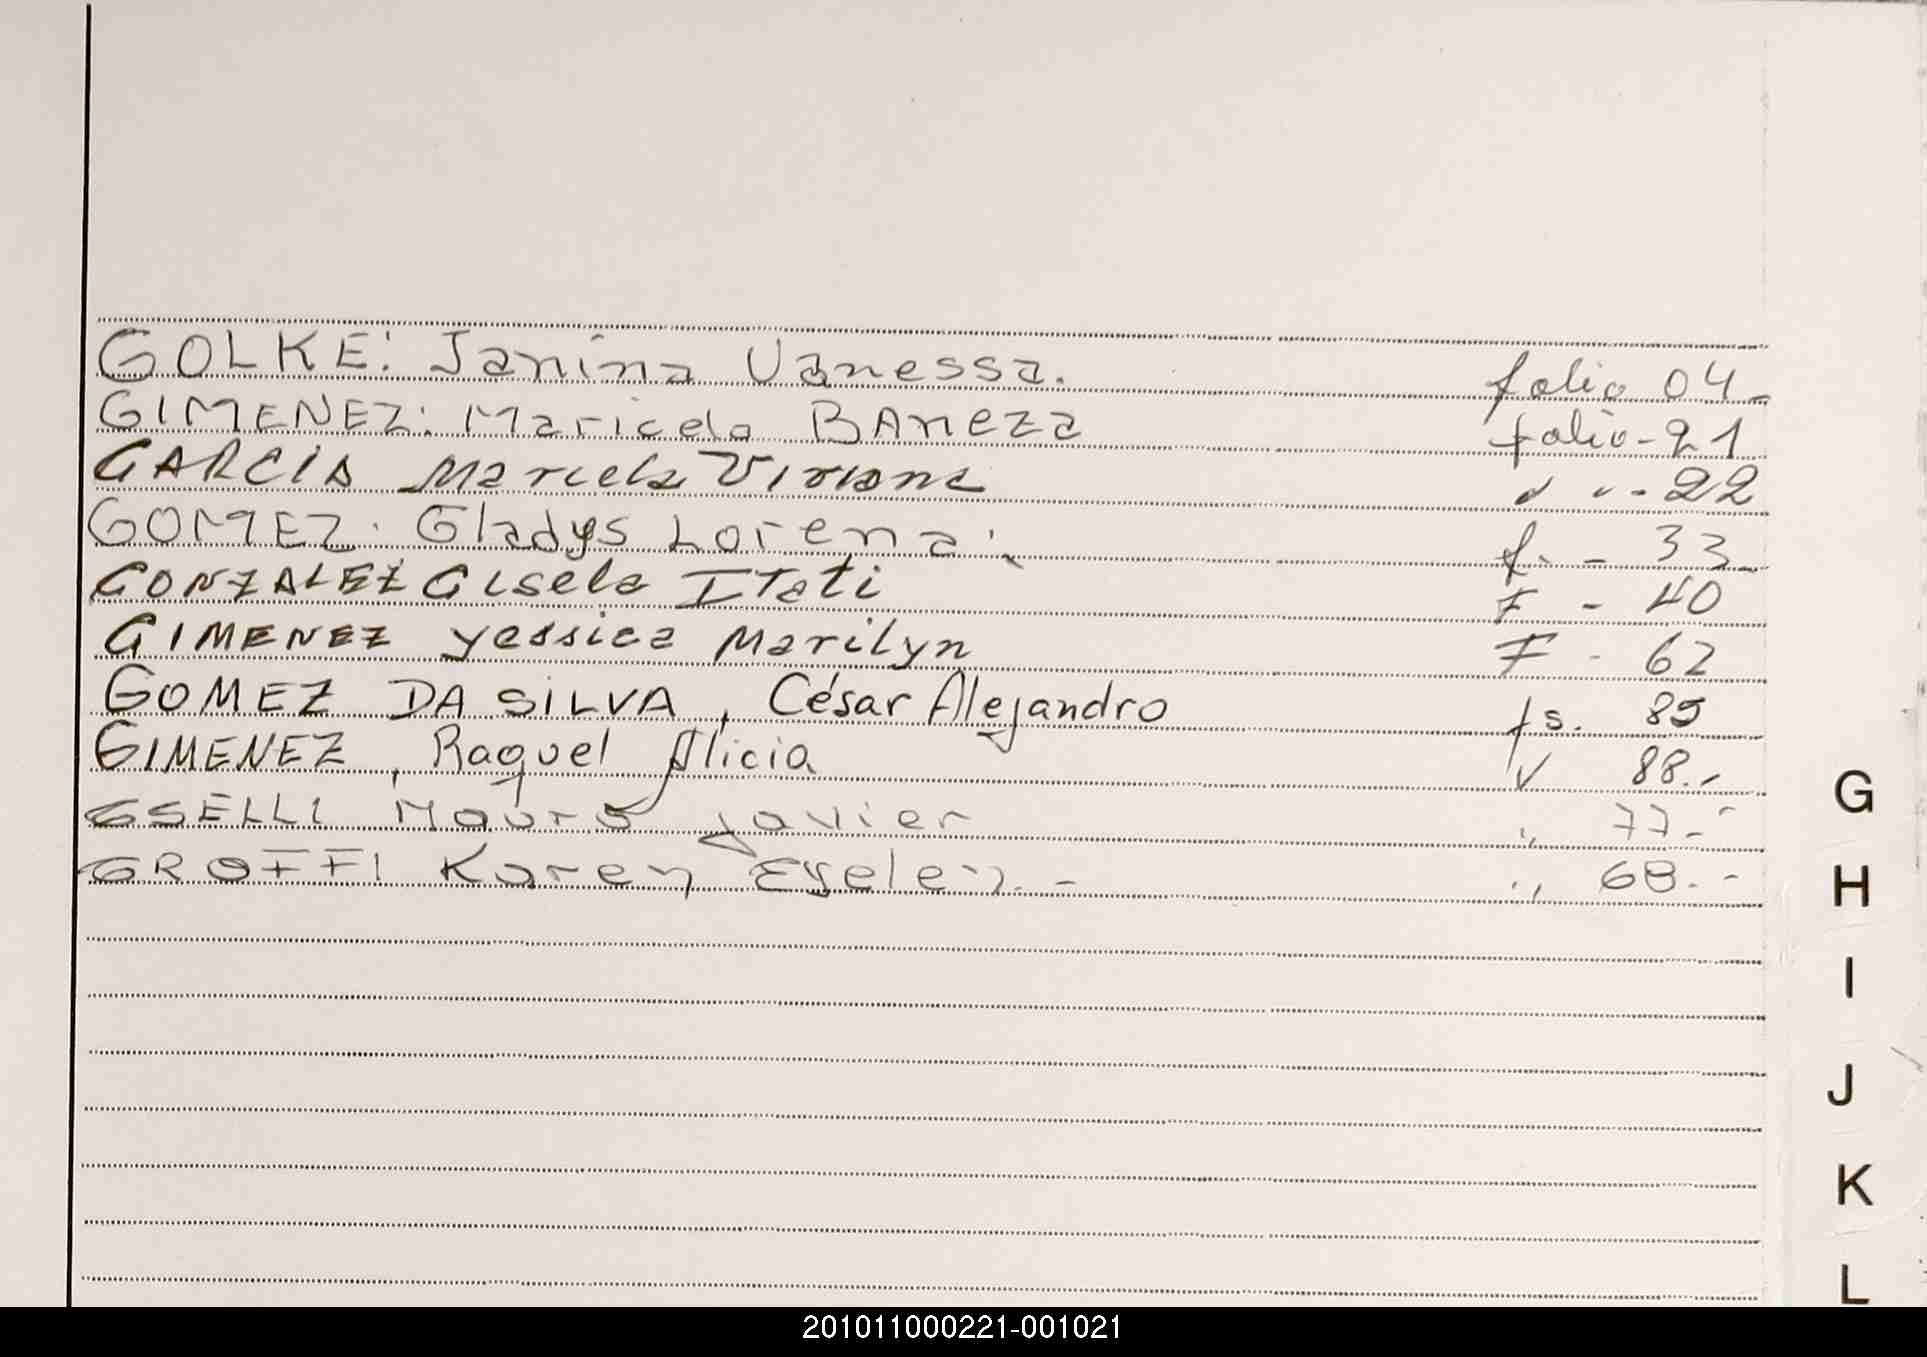 GOLKE: Janina Vanessa. folio 04-
GIMENEZ: Maricela BAneza folio-21
GARCIA Marcela Viviana " " - 22
GOMEZ. Gladys Lorena. f. - 33-
GONZALEZ Gisela Itati F - 40
GIMENEZ Yessica Marilyn F - 62
GOMEZ DA SILVA, César Alejandro fs. 85
GIMENEZ, Raquel Alicia 88.-
GSELLI Mauro Javier " 77.-
GROFFI Karen Eyelen.- " 68.-
G
H
I
J
K
L
201011000221-001021